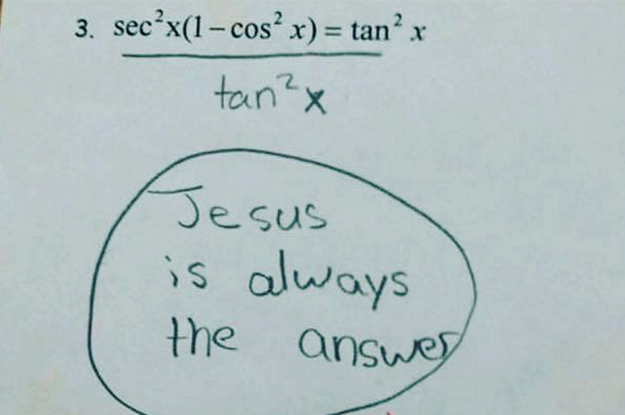 3. sec²x(1 – cos² x) = tan² x
tan²x
Jesus
is always
the answer